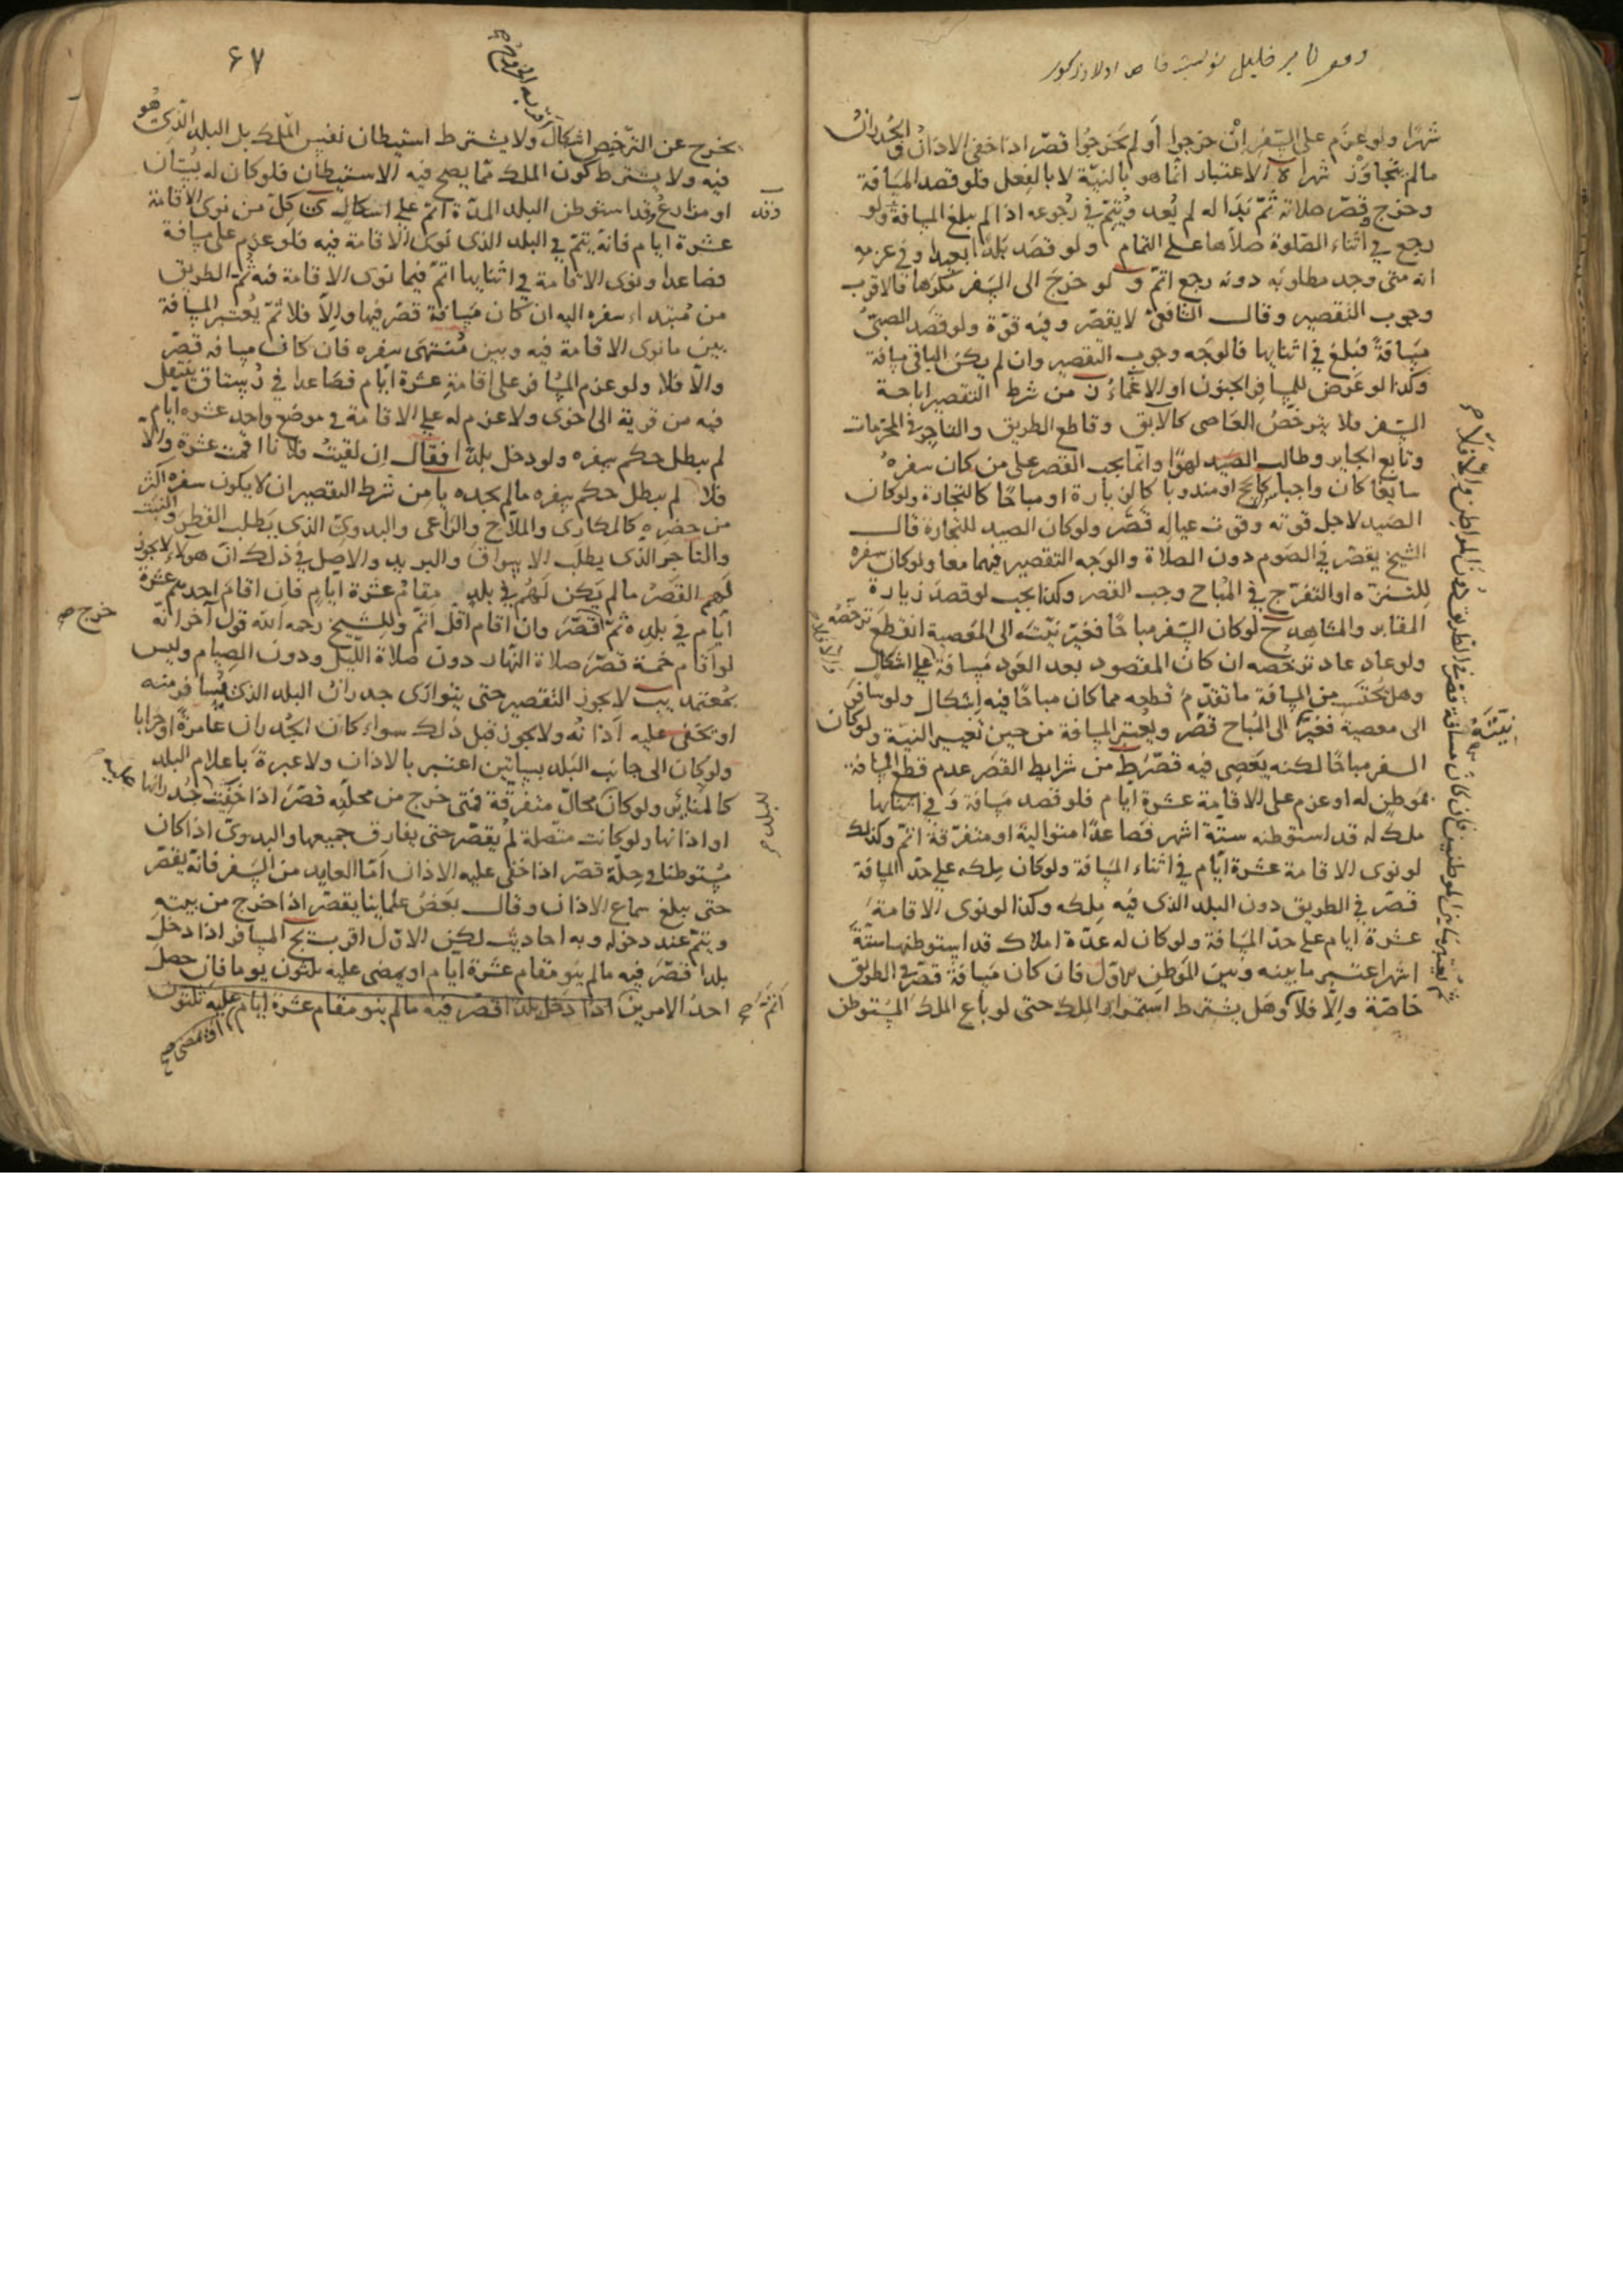 شهرا ولو عزم على السفر ان خرجوا أو لم يخرجوا قصّر اذا خفى الاذان والجدران
ما لم يتجاوز شهرا ة الاعتبار انما هو بالنيّة لا بالفعل فلو قصد المسافة
وخرج قصّر صلاته ثمّ بدا له لم يُعد ويُتمّ في رجوعه اذا لم يبلغ المسافة ولو
رجع في أثناء الصّلوة صلاها على التمام و لو قصد بلدا بعيدا وفي عزمه
انه متى وجد مطلوبه دونه رجع اتمّ و لو خرج الى السفر مكرها فالاقرب
وجوب التقصير وقال الشافعى لا يقصّر وفيه قوّة ولو قصد الصبىّ
مسافةً فبلغ في اثنايها فالوجه وجوب التقصير وان لم يكن الباقى مسافة
وكذا لو عرض للمسافر الجنون او الاغماء ن من شرط التقصير اباحة
السّفر فلا يترخّصُ العاصى كالآبق وقاطع الطريق والتاجر في المحرّمات
وتابع الجاير وطالب الصيد لهوًا وانّما يجب القصر على من كان سفره
سايغًا كان واجبا كالحج او مندوبا كالزيارة او مباحًا كالتجارة ولو كان
الصّيد لاجل قوته وقوت عياله قصّر ولو كان الصيد للتجارة قال
الشيخ يقصّر في الصّوم دون الصلاة والوجه التقصير فيهما معا ولو كان سفره
للتنزّه او التفرّج في المُباح وجب القصر وكذا يجب لو قصد زيارة
المقابر والمشاهد ح لو كان السّفر مباحًا فغيّر نيّته الى المعصية انقطع ترخّصه
ولو عاد عاد ترخّصه ان كان المقصود بعد العود مسافة على اشكال
وهل يُحتسب من المسافة ما تقدّم قطعه مما كان مباحًا فيه اشكال ولو سافر
الى معصية فغيّر الى المُباح قصّر ويعتبر المسافة من حين تغيير النيّة ولو كان
السفر مباحًا لكنه يعصى فيه قصّر ط من شرايط القصر عدم قطع المسافة
بموطن له او عزم على الاقامة عشرة ايّام فلو قصد مسافة وفي اثنايها
ملك له قد استوطنه ستّة اشهر فصاعدًا متوالية او متفرّقة اتمّ وكذلك
لو نوى الاقامة عشرة ايّام في اثناء المسافة ولو كان ملكه على حدّ المسافة
قصّر في الطريق دون البلد الذى فيه ملكه وكذا لو نوى الاقامة
عشرة ايّام على حدّ المسافة ولو كان له عدّة املاك قد استوطنها ستّة
اشهر اعتبر ما بينه وبين الموطن الاوّل فان كان مسافة قصّر في الطريق
خاصّة والّا فلا وهل يشترط استمرار الملك حتى لو باع الملك المستوطن
نيّته
ثم يعتبر ما بين الموطنين فان كان مسافة قصّر في الطريق دون المواطن والا فلا
۶۷
اقربه الخروج
يخرج عن الترخّص اشكال ولا يشترط استيطان نفس الملك بل البلد الذى هو
فيه ولا يشترط كون الملك ممّا يصح فيه الاستيطان فلو كان له بُستان
او مزارع وقد استوطن البلد المدّة اتمّ على اشكال كلّ من نوى الاقامة
عشرة ايام فانّه يتمّ في البلد الذى نوى الاقامة فيه فلو عزم على مسافة
فصاعدا ونوى الاقامة في اثنايها اتمّ فيما نوى الاقامة فيه ثمّ الطريق
من مُبتداء سفره اليه ان كان مسافة قصّر فيها والّا فلا ثمّ يُعتبر المسافة
بين ما نوى الاقامة فيه وبين مُنتهى سفره فان كان مسافة قصّر
والّا فلا ولو عزم المسافر على اقامة عشرة ايّام فصاعدا في رُستاق ينتقل
فيه من قرية الى اخرى ولا عزم له على الاقامة في موضع واحد عشرة ايام
لم يبطل حكم سفره ولو دخل بلدا فقال ان لقيتُ فلانا اقمت عشرة والّا
فلا لم يبطل حكم سفره ما لم يجده يا من شرط التقصير ان لا يكون سفره اكثر
من حضره كالمكارى والملّاح والرّاعى والبدوىّ الذى يطلب القطر والنبت
والتاجر الذى يطلب الاسواق والبريد والاصل في ذلك انّ هولاء لا يجوز
لهم القصر ما لم يكن لهم في بلد مقام عشرة ايامٍ فان اقام احدهم عشرة
ايّام في بلده ثمّ قصّر وان اقام اقلّ اتمّ وللشيخ رحمه الله قول آخر انّه
لو اقام خمسة قصّر صلاة النّهار دون صلاة اللّيل ودون الصيام وليس
بمُعتمد يب لا يجوز التقصير حتى يتوارى جدران البلد الذى يُسافر منه
او يخفى عليه اذانه ولا يجوز قبل ذلك سواء كان الجُدران عامرةً او خرابا
ولو كان الى جانب البلد بساتين اعتبر بالاذان ولا عبرة باعلام البلد
كالمناير ولو كان محالّ متفرّقة فمتى خرج من محلّته قصّر اذا خفيت جدرانها
او اذانها ولو كانت متّصلة لم يقصّر حتى يفارق جميعها والبدوىّ اذا كان
مُستوطنا في حِلّة قصّر اذا خفى عليه الاذان امّا العايد من السّفر فانّه يقصّر
حتى يبلغ سماع الاذان وقال بعض علماينا يقصّر اذا خرج من بيته
ويتمّ عند دخوله وبه احاديث لكن الاوّل اقرب يج المسافر اذا دخل
بلدا قصّر فيه ما لم ينو مقام عشرة ايّام او يمضى عليه ثلثون يوما فان حصل
احد الامرين اذا دخل بلدا قصّر فيه ما لم ينو مقام عشرة ايّام عليه ثلثون
وقد
خرج
للبلد
اتمّ
او يمضى